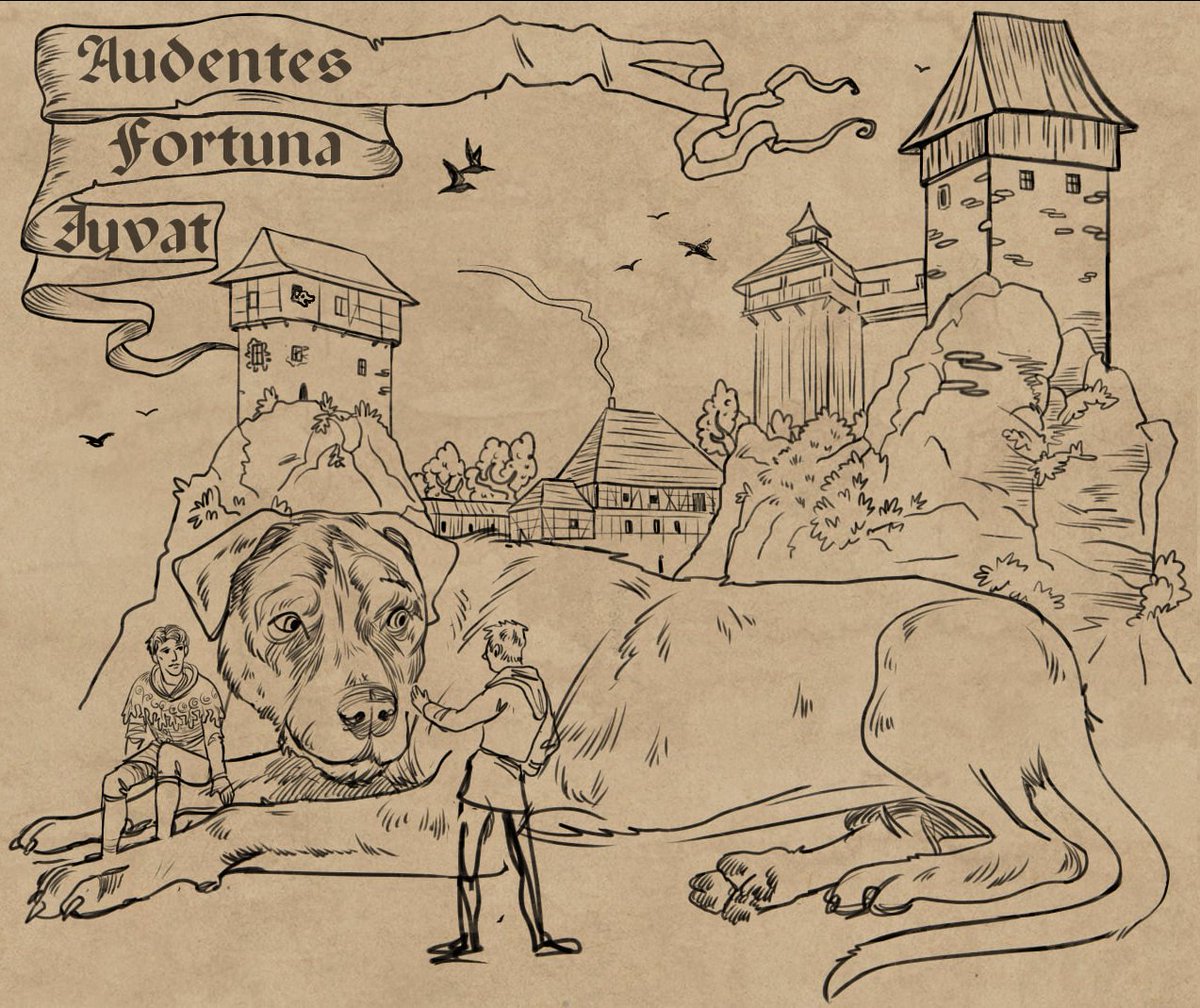 Audentes
Fortuna
Iuvat